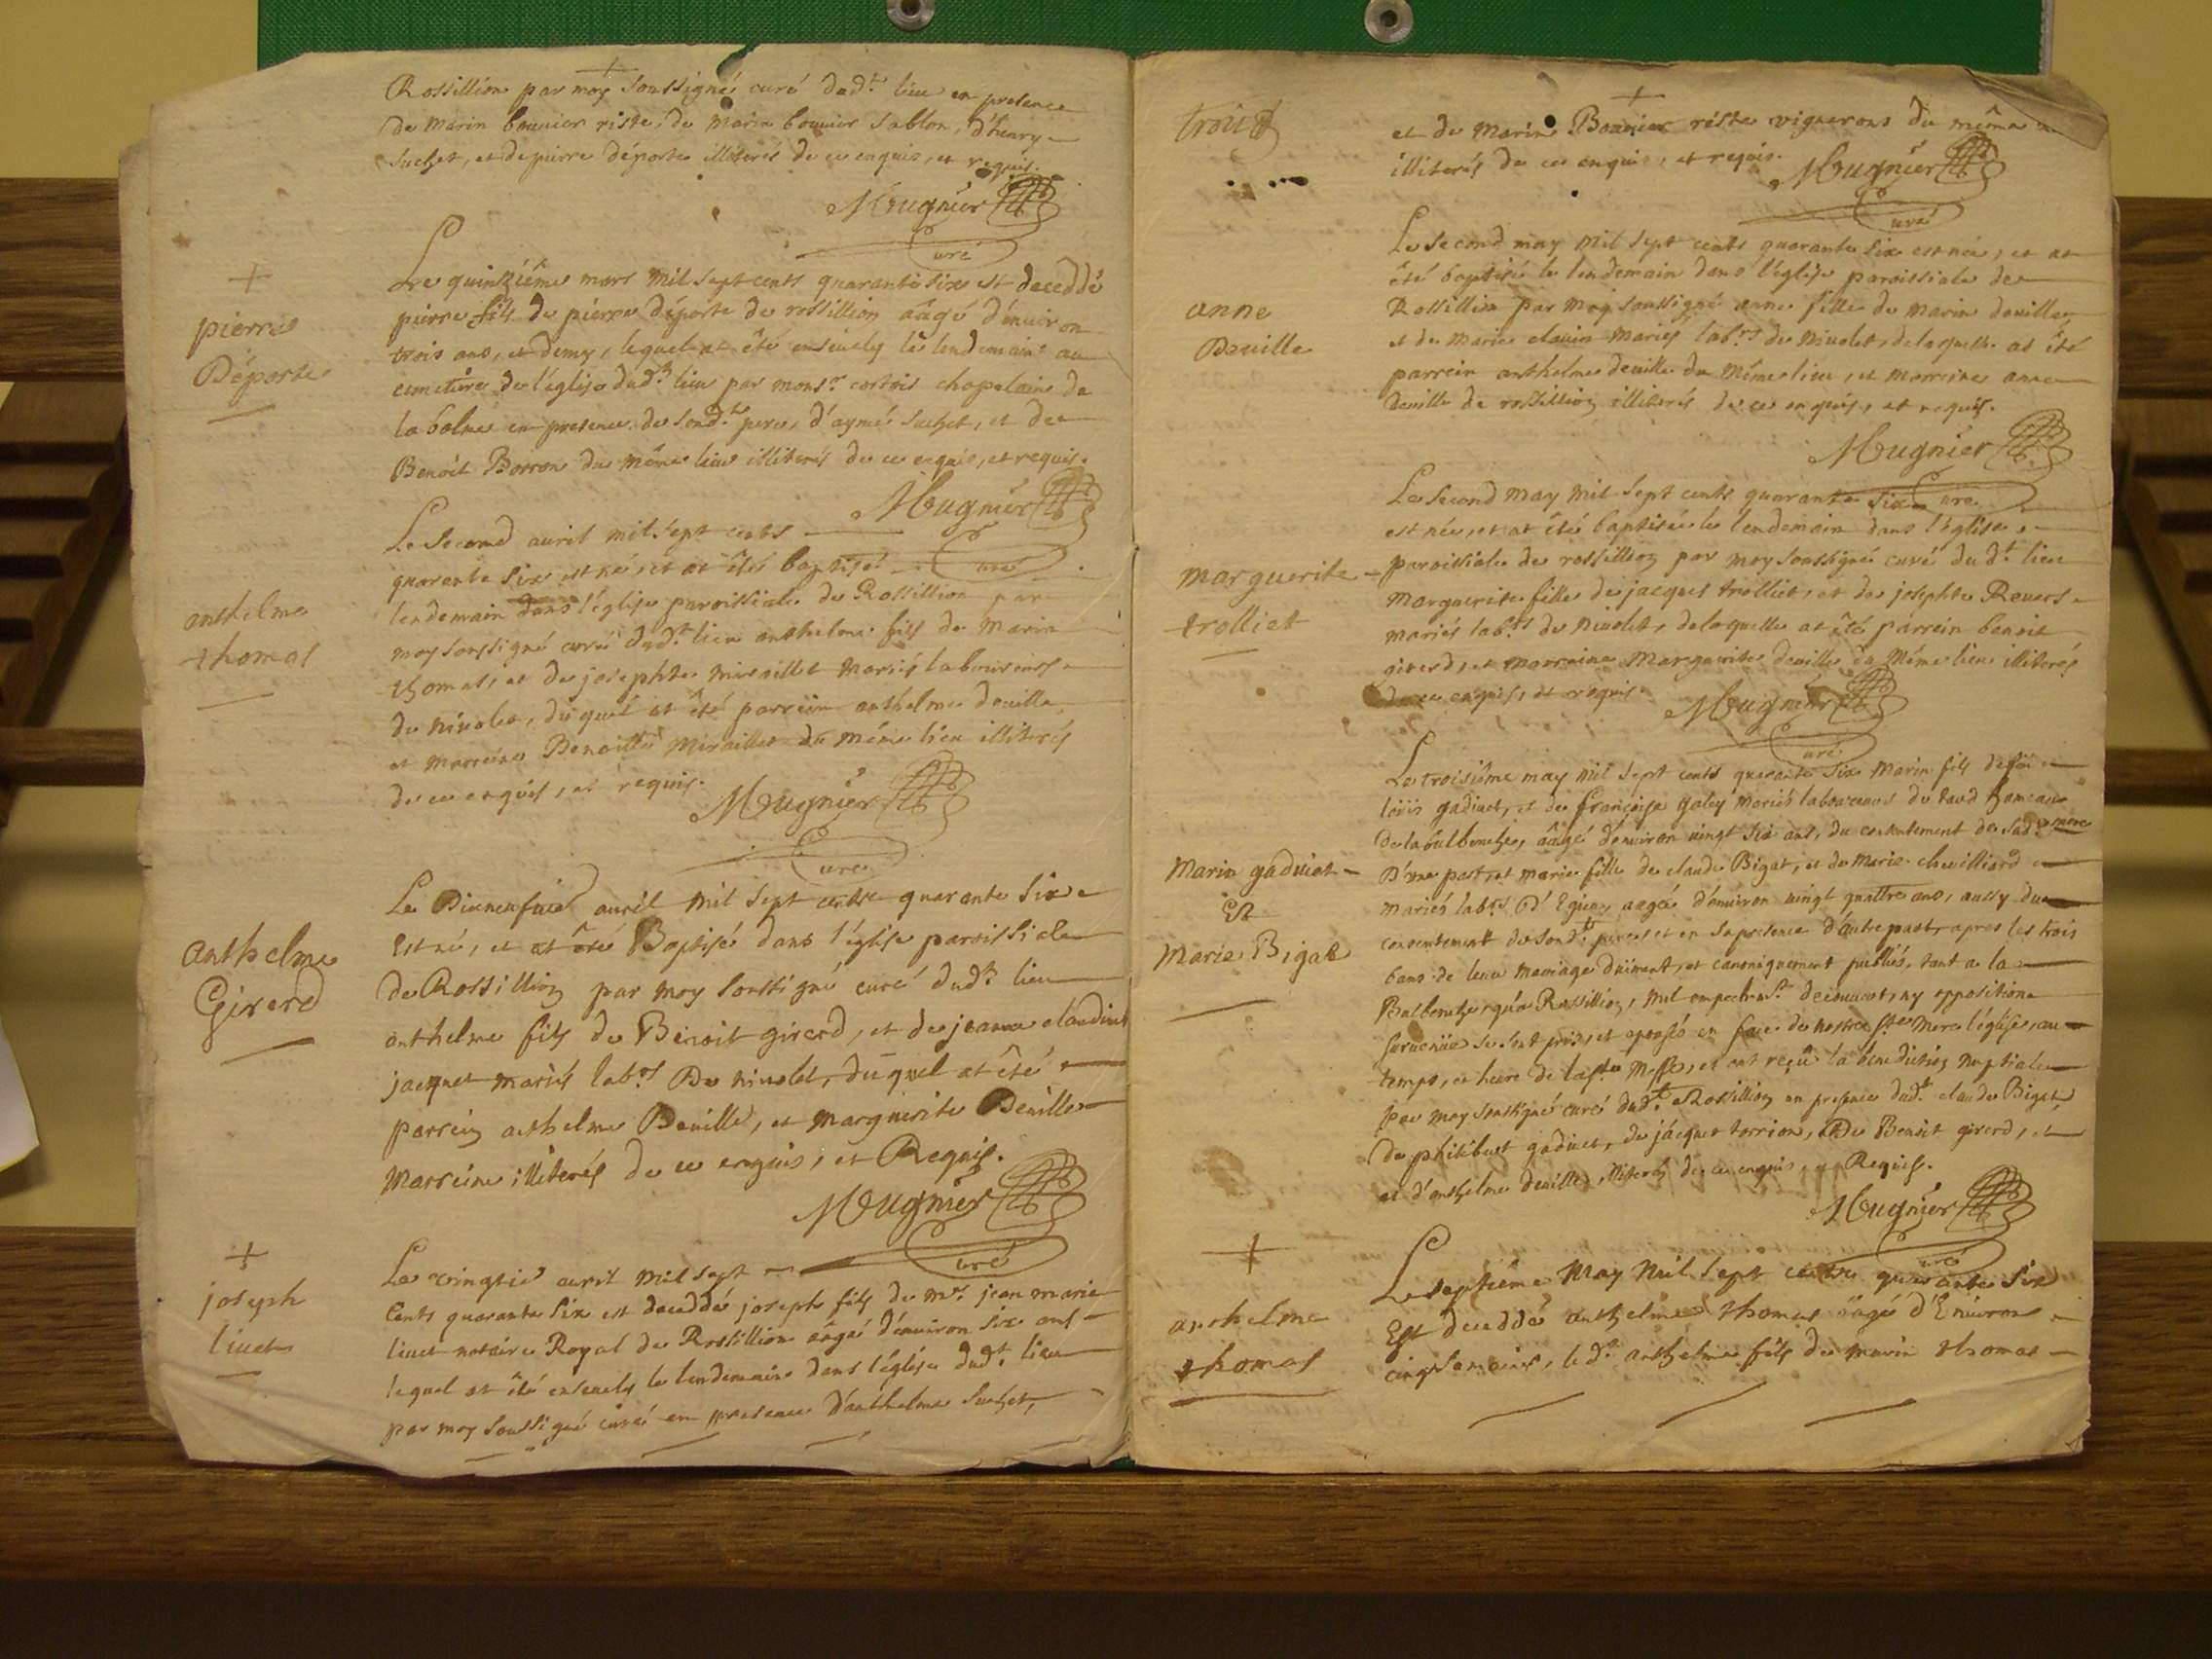 Rossillion par moy soussigné curé dud.t lieu en presence
de Marin bonnier riste, de Marin bonnier sablon, d'henry
suchet, et de pierre déporte illiterés de ce enquis, et requis.
Mugnier
curé
+
pierre
Déporte
Le quinziéme mars mil sept cents quarante six est deceddé
pierre fils de pierre déporte de rossillion âagé d'enuiron
trois ans, et demy, lequel at été enseuely le lendemain au
cimetiere de l'église dud.t lieu par mons.r cortois chapelain de
la balme en presence de sond.t pere, d'aymé suchet, et de
Benoit Borron du même lieu illiterés de ce enquis, et requis.
Mugnier
curé
anthelme
thomas
Le second auril mil sept cents
quarante six est né, et at été baptisé
lendemain dans l'église paroissiale de Rossillion par
moy soussigné curé dud.t lieu anthelme fils de Marin
thomas, et de josephte miraillet mariés laboureurs
de niuolet, duquel at été parrein anthelme deuille,
et marreine Benoitte Miraillet du même lieu illiterés
de ce enquis, et requis.
Mugnier
curé
anthelme
Girerd
Le Dixneufuie auril mil sept cents quarante six
Est né, et at été Baptisé dans l'église paroissiale
de Rossillion par moy soussigné curé dud.t lieu
anthelme fils de Benoit girerd, et de jeanne claudine
jacquet mariés lab.rs De niuolet, duquel at été
parrein anthelme Deuille, et marguerite Deuille
Marreine illiterés de ce enquis, et Requis.
Mugnier
curé
+
joseph
liuet
Le vingtié auril mil sept
Cents quarante six est deceddé joseph fils de m.r jean marie
liuet notaire Royal de Rossillion âagé d'enuiron six ans
lequel at été enseuely le lendemain dans l'église dud.t lieu
par moy soussigné curé en presence d'anthelme suchet,
et de Marin Bonnier riste vignerons du même
illiterés de ce enquis, et requis.
Mugnier
curé
anne
Deuille
Le second may mil sept cents quarante six est née, et at
été baptisée le lendemain dans l'église paroissiale de
Rossillion par moy soussigné anne fille de marin deuille
et de marie mariés lab.rs de niuolet, de laquelle at été
parrein anthelme deuille du même lieu, et marreine anne
deuille de rossillion illiterés de ce enquis, et requis.
Mugnier
curé
marguerite
trolliet
Le second may mil sept cents quarante six
est née, et at été baptisée le lendemain dans l'église
paroissiale de rossillion par moy soussigné curé dud.t lieu
marguerite fille de jacques trolliet, et de josephte Reuers
mariés lab.rs de niuolet, de laquelle at été parrein benoit
girerd, et marreine Marguerite deuille du même lieu illiterés
de ce enquis, et requis.
Mugnier
curé
Marin gaduiet
Et
Marie Bigat
Le troisiéme may mil sept cents quarante six Marin fils de
loüis gaduiet, et de françoise galey mariés laboureurs
âagé d'enuiron vingt six ans, du consentement de sad. mere
D'une part, et marie fille de claude Bigat, et de Marie cheuilliard
mariés lab.rs âagée d'enuiron vingt quattre ans, aussy du
consentement de sond.t pere, et en sa presence d'autre part, apres les trois
bans de leur mariage düement, et canoniquement publiés, tant a la
Burbanche qu'a Rossillion, nul ny opposition
suruenüe se sont pris, et eposés en face de nostre s.te mere l'église, au
temps, et heure de la s.te Messe, et ont reçu la benediction nuptiale
par moy soussigné curé dud.t Rossillion en presence dud.t claude Bigat,
de philibert gaduiet, de jacques torrion, De Benoit girerd,
et d'anthelme deuille illiterés de ce enquis et Requis.
Mugnier
curé
+
anthelme
thomas
Le septiéme May Mil sept cents quarante six
Est deceddé anthelme thomas âagé d'Enuiron
cinq semaines, led.t anthelme fils de marin thomas